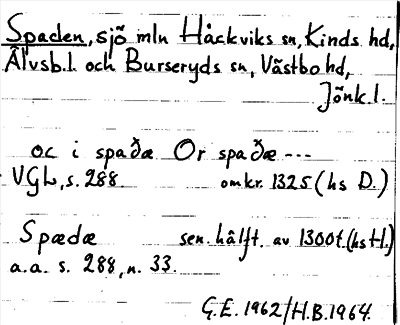 Spaden, sjö mln Håckviks sn, Kinds hd,
Älvsb.l. och Burseryds sn, Västbo hd,
Jönk.l.
oc i spaðæ Or spaðæ ---
VGL, s. 288. omkr. 1325 (hs D.)
Spædæ sen. hälft. av 1300t. (hs H.)
a.a. s. 288, n. 33.
G.E. 1962/H.B. 1964.